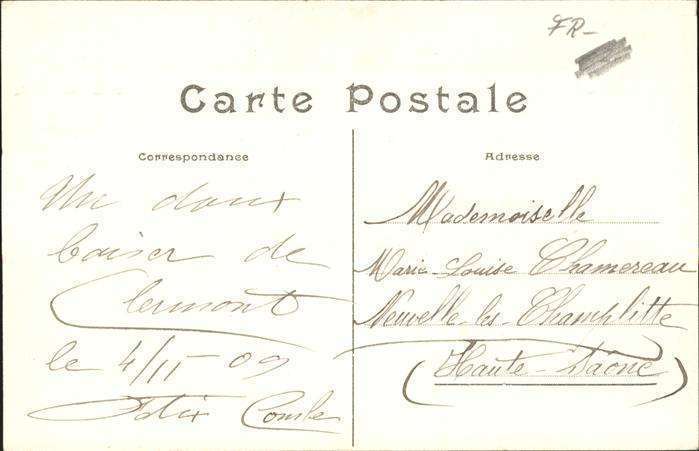 FR-
Carte Postale
Correspondance
Adresse
Un doux
baiser de
Clermont
le 4/11 09
Félix Comte
Mademoiselle
Marie-Louise Chamereau
Neuvelle-les-Champlitte
(Haute-Saône)